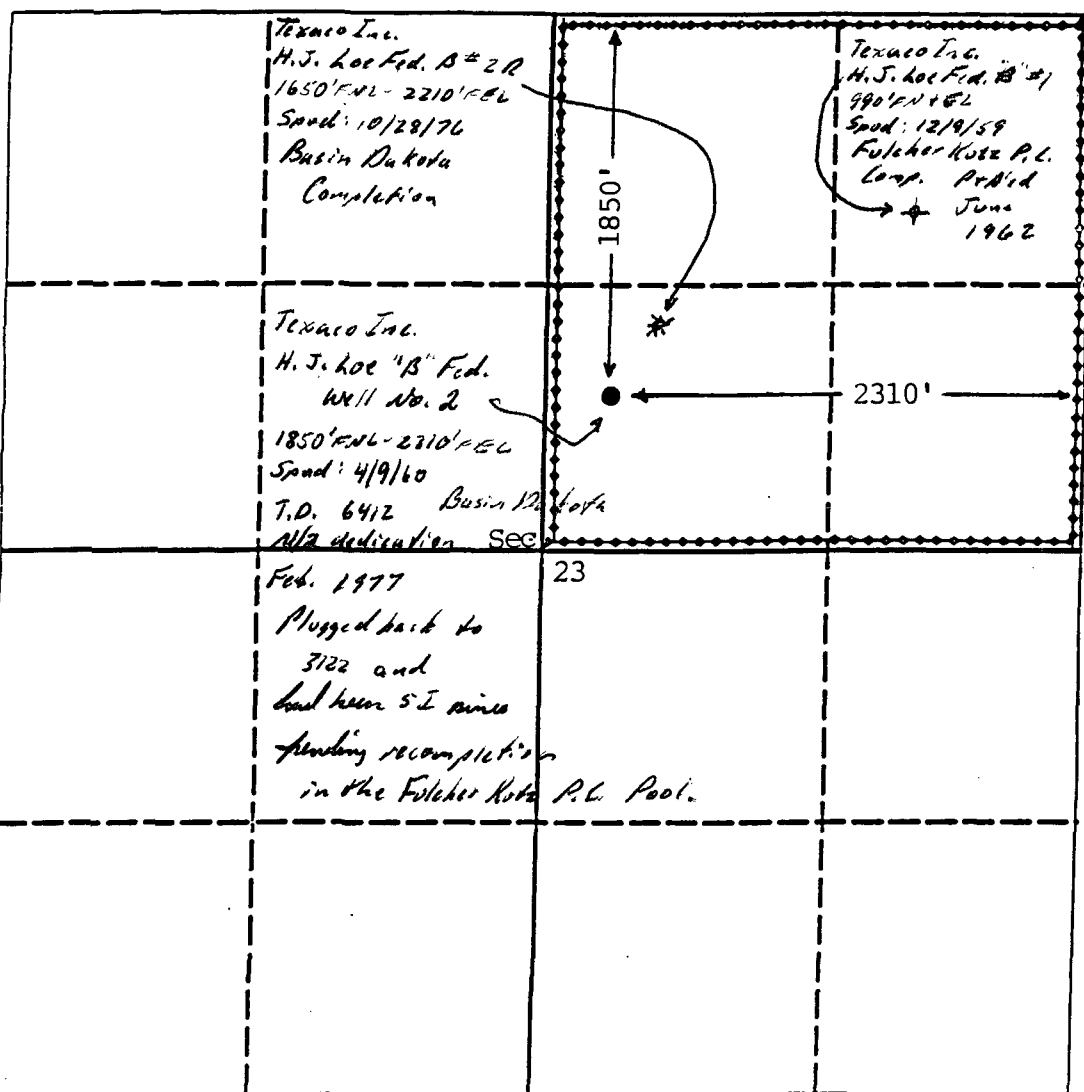 Texaco Inc.
H.J. Loe Fed. B #2R
1650' FNL - 2210' FEL
Spud: 10/28/76
Basin Dakota
Completion
Texaco Inc.
H.J. Loe Fed. "B" #1
990' FN + EL
Spud: 12/9/59
Fulcher Kutz P.C.
Comp. P+A'ed
June
1962
1850'
2310'
Texaco Inc.
H.J. Loe "B" Fed.
Well No. 2
1850' FNL - 2310' FEL
Spud: 4/9/60
T.D. 6412 Basin Dakota
N/2 dedication Sec
23
Feb. 1977
Plugged back to
3122 and
had been SI since
pending recompletion
in the Fulcher Kutz P.C. Pool.